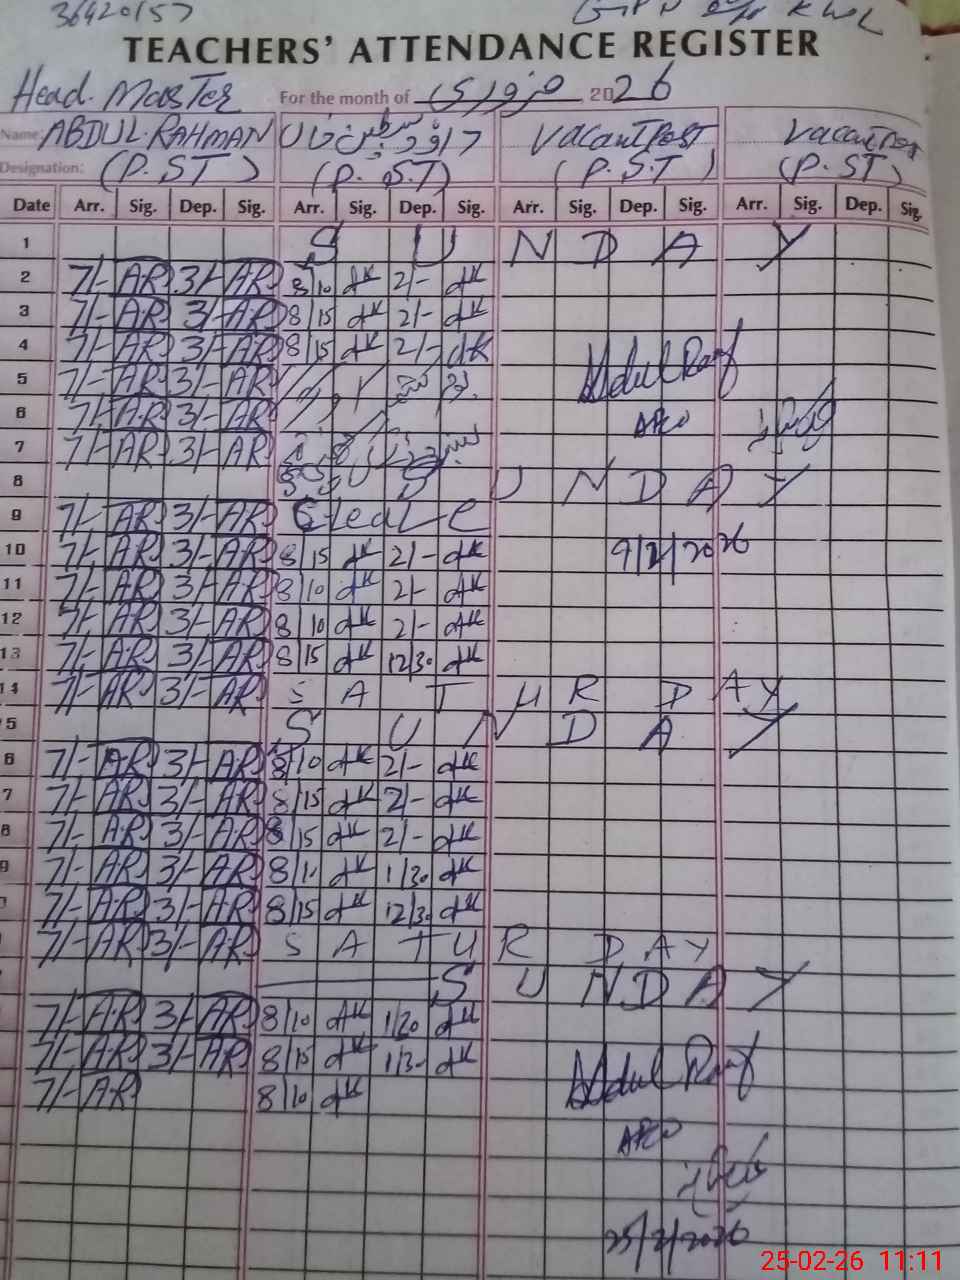 36420157
TEACHERS' ATTENDANCE REGISTER
Head. Master For the month of فروری, 2026
Name: ABDUL.RAHMAN Vacant Post Vacant Post
Designation: (P.ST) (P.S.T) (P.S.T) (P.ST)
Date Arr. Sig. Dep. Sig. Arr. Sig. Dep. Sig. Arr. Sig. Dep. Sig. Arr. Sig. Dep. Sig.
1 S U N D A Y
2 7/- AR 3/- AR 8/10 dK 2/- dK
3 7/- AR 3/- AR 8/15 dK 2/- dK
4 7/- AR 3/- AR 8/15 dK 2/- dK
5 7/- AR 3/- AR
Abdul Rauf
6 7/- AR 3/- AR
7 7/- AR 3/- AR
8 S U N D A Y
9 7/- AR 3/- AR
10 7/- AR 3/- AR 8/15 dK 2/- dK 9/2/2026
11 7/- AR 3/- AR 8/10 dK 2/- dK
12 7/- AR 3/- AR 8/10 dK 2/- dK
13 7/- AR 3/- AR 8/15 dK 12/30 dK
14 7/- AR 3/- AR S A T U R D A Y
5 S U N D A Y
6 7/- AR 3/- AR 8/10 dK 2/- dK
7 7/- AR 3/- AR 8/15 dK 2/- dK
8 7/- AR 3/- AR 8/15 dK 2/- dK
9 7/- AR 3/- AR 8/10 dK 1/30 dK
7/- AR 3/- AR 8/15 dK 12/30 dK
7/- AR 3/- AR S A T U R D A Y
S U N D A Y
7/- AR 3/- AR 8/10 dK 1/20 dK
7/- AR 3/- AR 8/15 dK 1/30 dK
Abdul Rauf
7/- AR 8/10 dK
25/2/2026
25-02-26 11:11